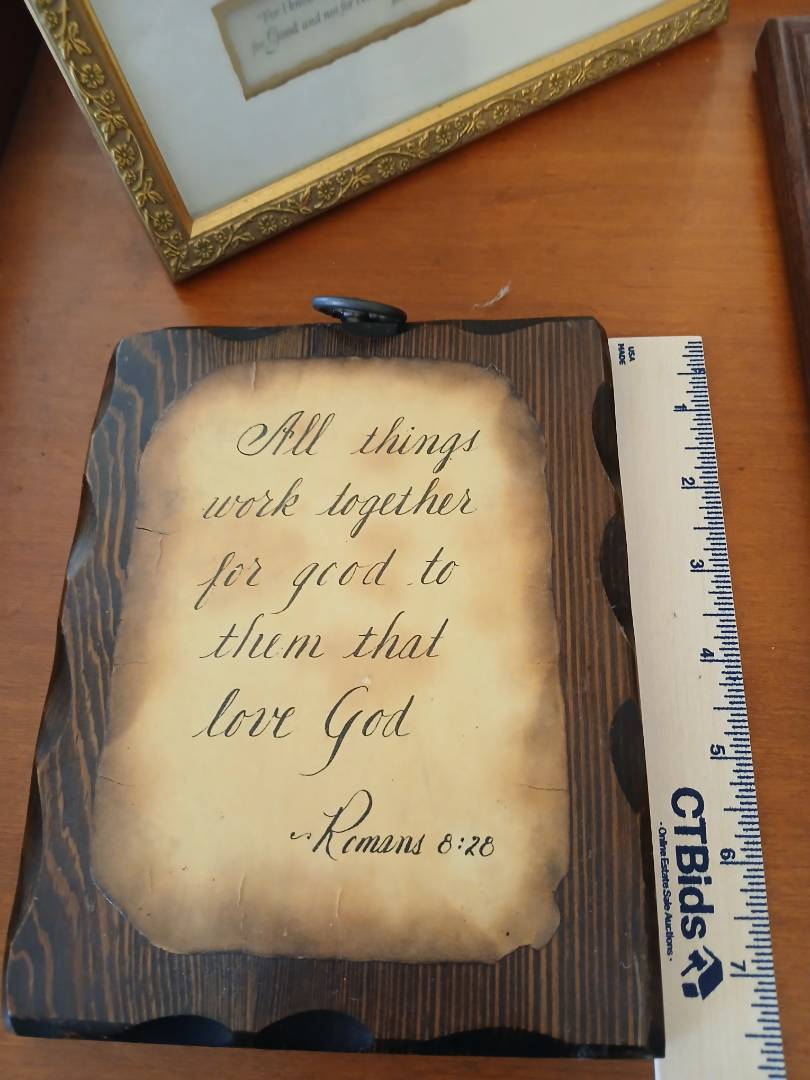 "For I know
for Good, and not for
All things
work together
for good to
them that
love God
Romans 8:28
MADE
USA
1
2
3
4
5
6
7
CTBids
- Online Estate Sale Auctions -